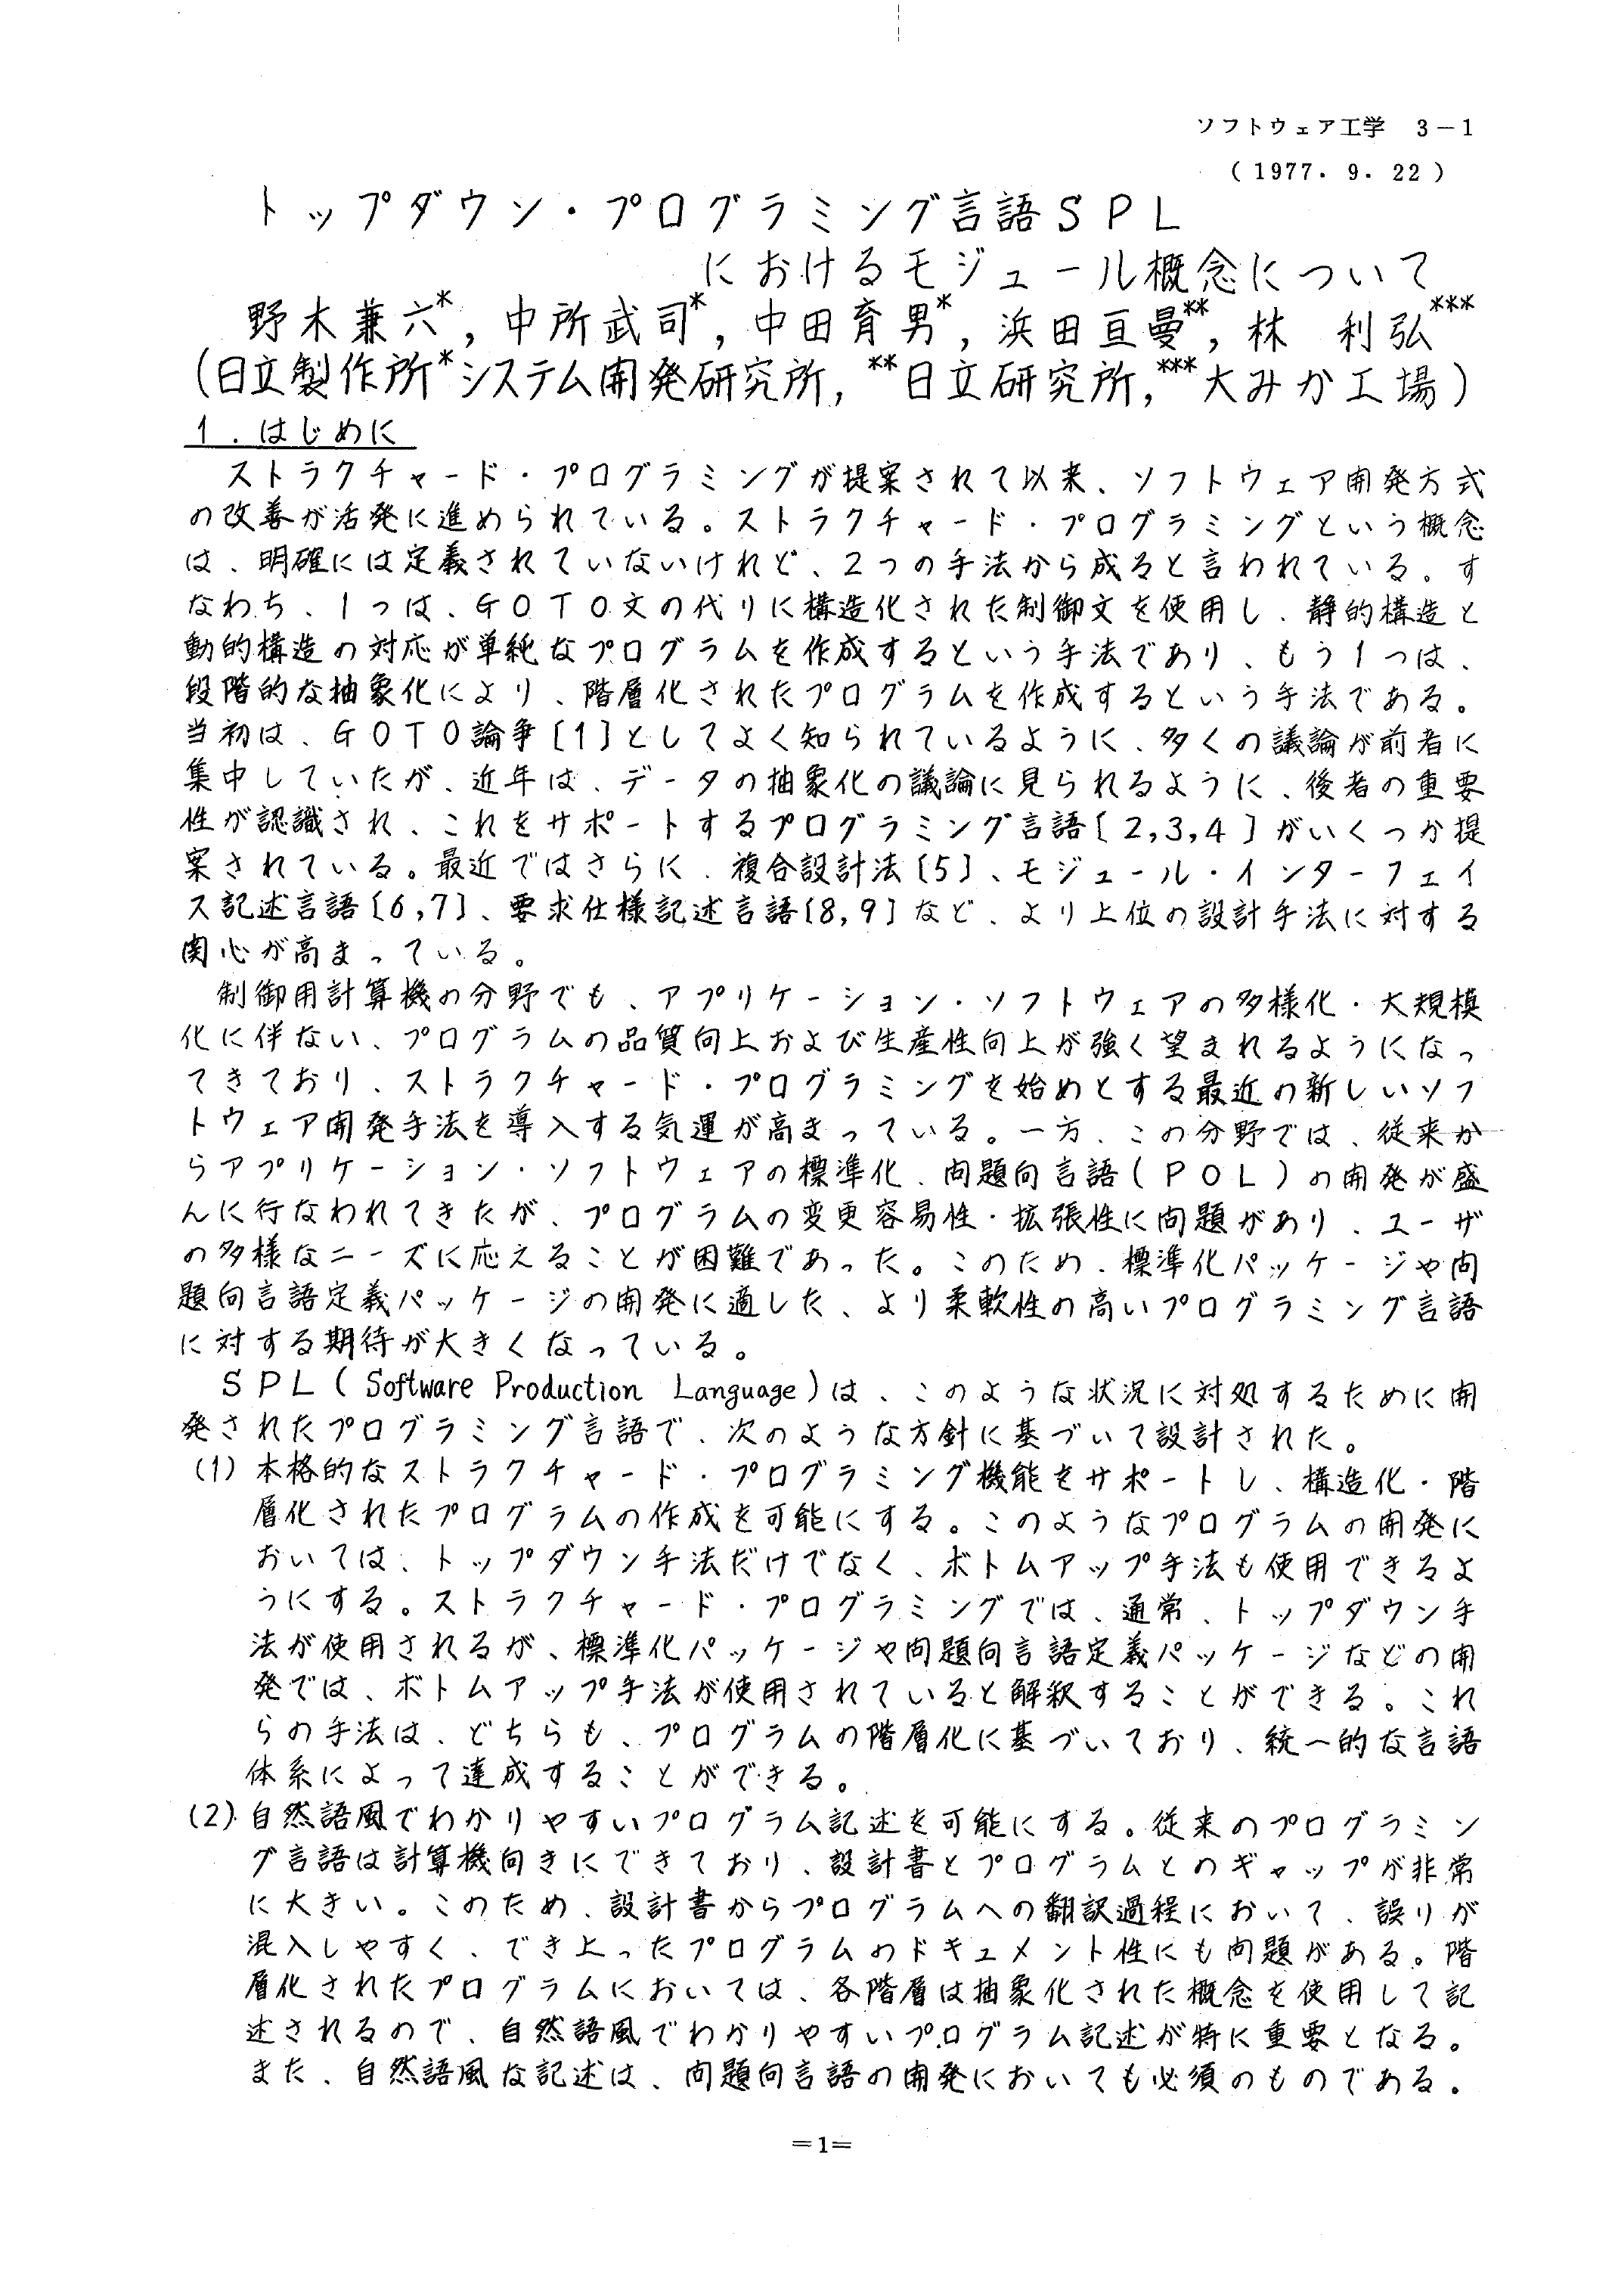 ソフトウェア工学 3-1
(1977. 9. 22)
トップダウン・プログラミング言語SPL
におけるモジュール概念について
野木兼六*, 中所武司*, 中田育男*, 浜田亘曼**, 林 利弘***
(日立製作所*システム開発研究所, **日立研究所, ***大みか工場)
1. はじめに
ストラクチャード・プログラミングが提案されて以来、ソフトウェア開発方式
の改善が活発に進められている。ストラクチャード・プログラミングという概念
は、明確には定義されていないけれど、2つの手法から成ると言われている。す
なわち、1つは、GOTO文の代りに構造化された制御文を使用し、静的構造と
動的構造の対応が単純なプログラムを作成するという手法であり、もう1つは、
段階的な抽象化により、階層化されたプログラムを作成するという手法である。
当初は、GOTO論争[1]としてよく知られているように、多くの議論が前者に
集中していたが、近年は、データの抽象化の議論に見られるように、後者の重要
性が認識され、これをサポートするプログラミング言語[2,3,4]がいくつか提
案されている。最近ではさらに、複合設計法[5]、モジュール・インターフェイ
ス記述言語[6,7]、要求仕様記述言語[8,9]など、より上位の設計手法に対する
関心が高まっている。
制御用計算機の分野でも、アプリケーション・ソフトウェアの多様化・大規模
化に伴ない、プログラムの品質向上および生産性向上が強く望まれるようになっ
てきており、ストラクチャード・プログラミングを始めとする最近の新しいソフ
トウェア開発手法を導入する気運が高まっている。一方、この分野では、従来か
らアプリケーション・ソフトウェアの標準化、問題向言語(POL)の開発が盛
んに行なわれてきたが、プログラムの変更容易性・拡張性に問題があり、ユーザ
の多様なニーズに応えることが困難であった。このため、標準化パッケージや問
題向言語定義パッケージの開発に適した、より柔軟性の高いプログラミング言語
に対する期待が大きくなっている。
SPL(Software Production Language)は、このような状況に対処するために開
発されたプログラミング言語で、次のような方針に基づいて設計された。
(1) 本格的なストラクチャード・プログラミング機能をサポートし、構造化・階
層化されたプログラムの作成を可能にする。このようなプログラムの開発に
おいては、トップダウン手法だけでなく、ボトムアップ手法も使用できるよ
うにする。ストラクチャード・プログラミングでは、通常、トップダウン手
法が使用されるが、標準化パッケージや問題向言語定義パッケージなどの開
発では、ボトムアップ手法が使用されていると解釈することができる。これ
らの手法は、どちらも、プログラムの階層化に基づいており、統一的な言語
体系によって達成することができる。
(2) 自然語風でわかりやすいプログラム記述を可能にする。従来のプログラミン
グ言語は計算機向きにできており、設計書とプログラムとのギャップが非常
に大きい。このため、設計書からプログラムへの翻訳過程において、誤りが
混入しやすく、でき上ったプログラムのドキュメント性にも問題がある。階
層化されたプログラムにおいては、各階層は抽象化された概念を使用して記
述されるので、自然語風でわかりやすいプログラム記述が特に重要となる。
また、自然語風な記述は、問題向言語の開発においても必須のものである。
=1=